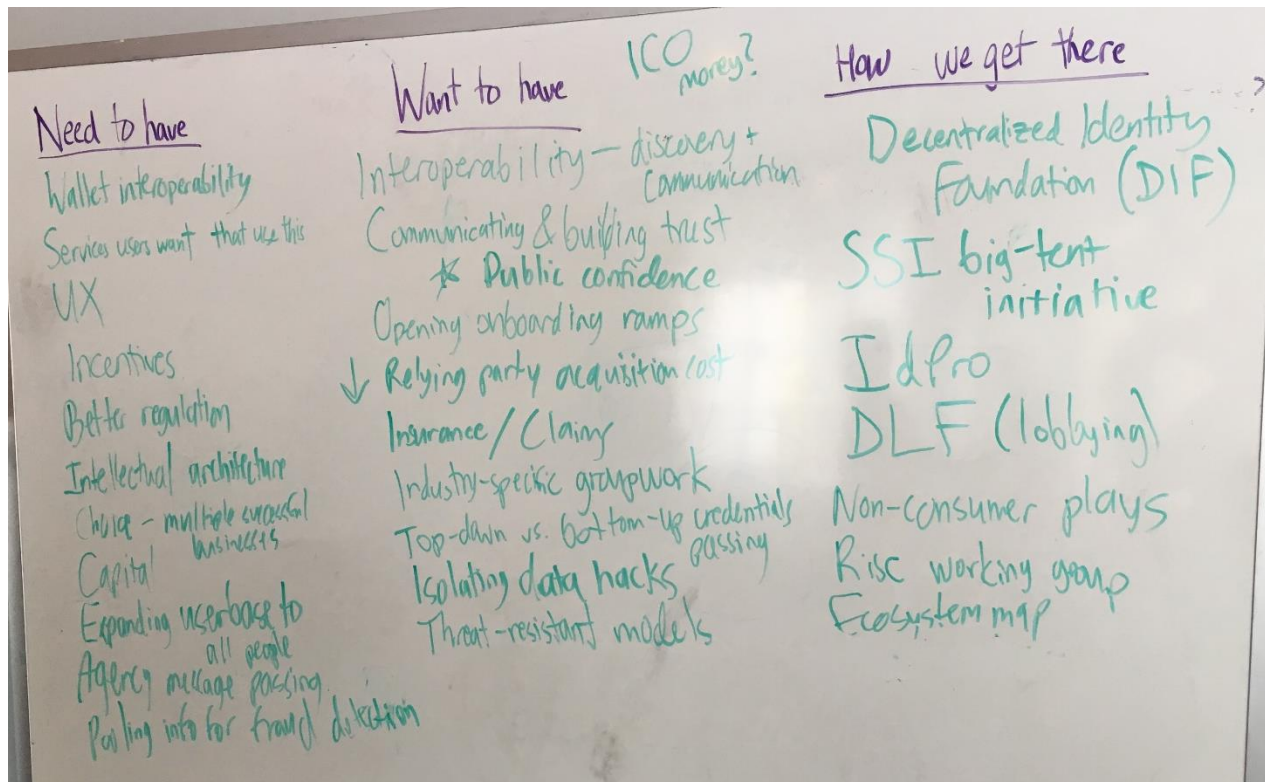 Need to have
Wallet interoperability
Services users want that use this
UX
Incentives
Better regulation
Intellectual architecture
Choice - multiple successful
businesses
Capital
Expanding userbase to
all people
Agency message passing
Pooling info for fraud detection
ICO
money?
Want to have
Interoperability - discovery +
communication
Communicating & building trust
* Public confidence
Opening onboarding ramps
↓ Relying party acquisition cost
Insurance/Claims
Industry-specific groupwork
Top-down vs. bottom-up credentials
passing
Isolating data hacks
Threat-resistant models
How we get there
Decentralized Identity
Foundation (DIF)
SSI big-tent
initiative
IdPro
DLF (lobbying)
Non-consumer plays
Risc working group
Ecosystem map